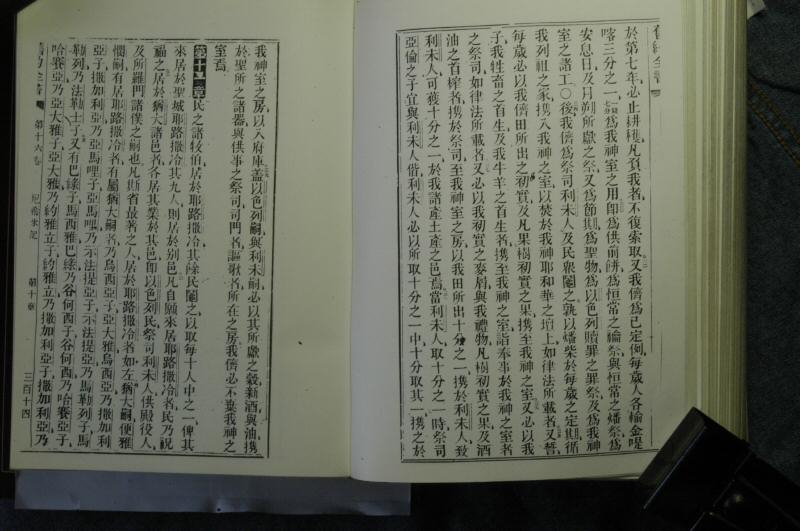 舊約全書
於第七年必止耕穫凡負我者不復索取又我儕爲己定例每歲人各輸金㖷
喀三分之一爲我神室之用卽爲供前餅爲恒常之禴祭與恒常之燔祭爲
安息日及月朔所獻之祭又爲節期爲聖物爲以色列贖罪之罪祭及爲我神
室之諸工〇後我儕爲祭司利未人及民衆鬮之孰以燔柴於每歲之定期循
我列祖之家携入我神之室以焚於我神耶和華之壇上如律法所載者又誓
每歲必以我儕田所出之初實及凡果樹初實之果携至我神之室又必以我
子我牲畜之首生及我牛羊之首生者携至我神之室詣奉事於我神之室者
之祭司如律法所載者又必以我初實之麥屑與我禮物凡樹初實之果及酒
油之首榨者携於祭司至我神室之房以我田所出十分之一携於利未人致
利未人可獲十分之一於我諸產土產之邑焉當利未人取十分之一時祭司
亞倫之子宜與利未人偕利未人必以所取十分之一中十分取其一携之於
我神室之房以入府庫蓋以色列嗣與利未嗣必以其所獻之穀新酒與油携
於聖所之諸器與供事之祭司司門者謳歌者所在之房我儕必不棄我神之
室焉
第十一章民之諸牧伯居於耶路撒冷其餘民鬮之以取每十人中之一俾其
來居於聖城耶路撒冷其九人則居於别邑凡自願來居耶路撒冷者民乃祝
福之居於猶大諸邑者各居其業於其邑卽以色列民祭司利未人供殿役人
及所羅門諸僕之嗣也凡斯省最著之人居於耶路撒冷者如左猶大嗣便雅
憫嗣有居耶路撒冷者有屬猶大嗣者乃烏西亞子亞大雅烏西亞乃撒加利
亞子撒加利亞乃亞馬哩子亞馬哩乃示法提亞子示法提亞乃馬勒列子馬
勒列乃法勒士子又有巴錄子馬西雅巴錄乃谷何西子谷何西乃哈賽亞子
哈賽亞乃亞大雅子亞大雅乃約雅立子約雅立乃撒加利亞子撒加利亞乃
舊約全書 第十六卷 尼希米記 第十章 三百十四